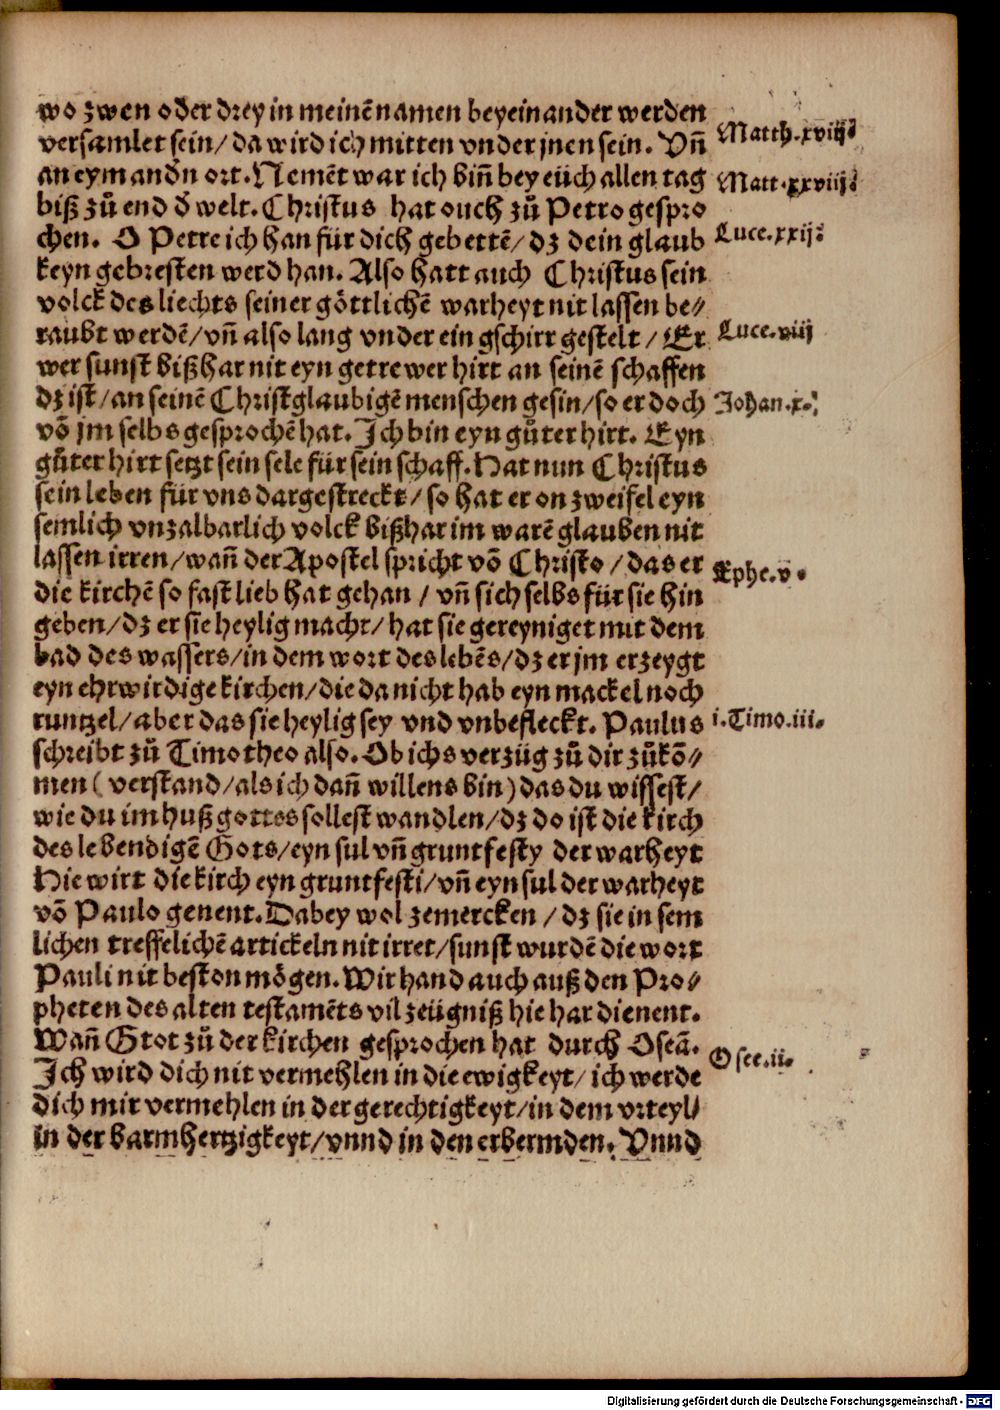 wo zwen oder drey in meinē namen beyeinander werden
versamlet sein/ da wird ich mitten vnder jnen sein. Vñ
Matth.xviij.
an eym andn ort. Nemēt war ich biñ bey eüch allen tag
Matt.xxviij.
biß zů end d̕ welt. Christus hat ouch zů Petro gespro
chen. O Petre ich han für dich gebettē/ dz dein glaub
Luce.xxij.
keyn gebresten werd han. Also hatt auch Christus sein
volck des liechts seiner göttlichē warheyt nit lassen be⸗
raubt werdē/ vñ also lang vnder ein gschirr gestelt / Er
Luce.viij
wer sunst bißhar nit eyn getrewer hirt an seinē schaffen
dz ist/ an seinē Christglaubigē menschen gesin/ so er doch
Johan.x.
vō jm selbs gesprochē hat. Ich bin eyn gůter hirt. Eyn
gůter hirt setzt sein sele für sein schaff. Hat nun Christus
sein leben für vns dargestreckt/ so hat er on zweifel eyn
semlich vnzalbarlich volck bißhar im warē glauben nit
lassen irren/ wañ der Apostel spricht vō Christo / das er
Ephe.v.
die kirchē so fast lieb hat gehan / vñ sich selbs für sie hin
geben/ dz er sie heylig macht/ hat sie gereyniget mit dem
bad des wassers/ in dem wort des lebēs/ dz er jm erzeygt
eyn ehrwirdige kirchen/ die da nicht hab eyn mackel noch
runtzel/ aber das sie heylig sey vnd vnbefleckt. Paulus
i.Timo.iii.
schreibt zů Timotheo also. Ob ichs verzüg zů dir zůkō⸗
men ( verstand/ als ich dañ willens bin ) das du wissest/
wie du im huß gottes sollest wandlen/ dz do ist die kirch
des lebendigē Gots/ eyn sul vñ gruntfesty der warheyt
Hie wirt die kirch eyn gruntfesti/ vñ eyn sul der warheyt
vō Paulo genent. Dabey wol zemercken / dz sie in sem
lichen treffelichē artickeln nit irret/ sunst wurdē die wort
Pauli nit beston mögen. Wir hand auch auß den Pro⸗
pheten des alten testamēts vil zeügniß hie har dienent.
Wañ Gtot zů der kirchen gesprochen hat durch Oseā.
Osee.ii.
Ich wird dich nit vermehlen in die ewigkeyt/ ich werde
dich mir vermehlen in der gerechtigkeyt/ in dem vrteyl/
in der barmhertzigkeyt/ vnnd in den erbermden. Vnnd
Digitalisierung gefördert durch die Deutsche Forschungsgemeinschaft - DFG